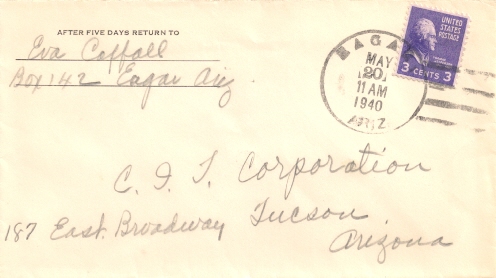 AFTER FIVE DAYS RETURN TO
Eva Coffall
Box 142 Eagar Ariz.
EAGAR
MAY
20
11 AM
1940
ARIZ.
UNITED
STATES
POSTAGE
3 CENTS 3
C. I. T. Corporation
187 East Broadway Tucson
Arizona